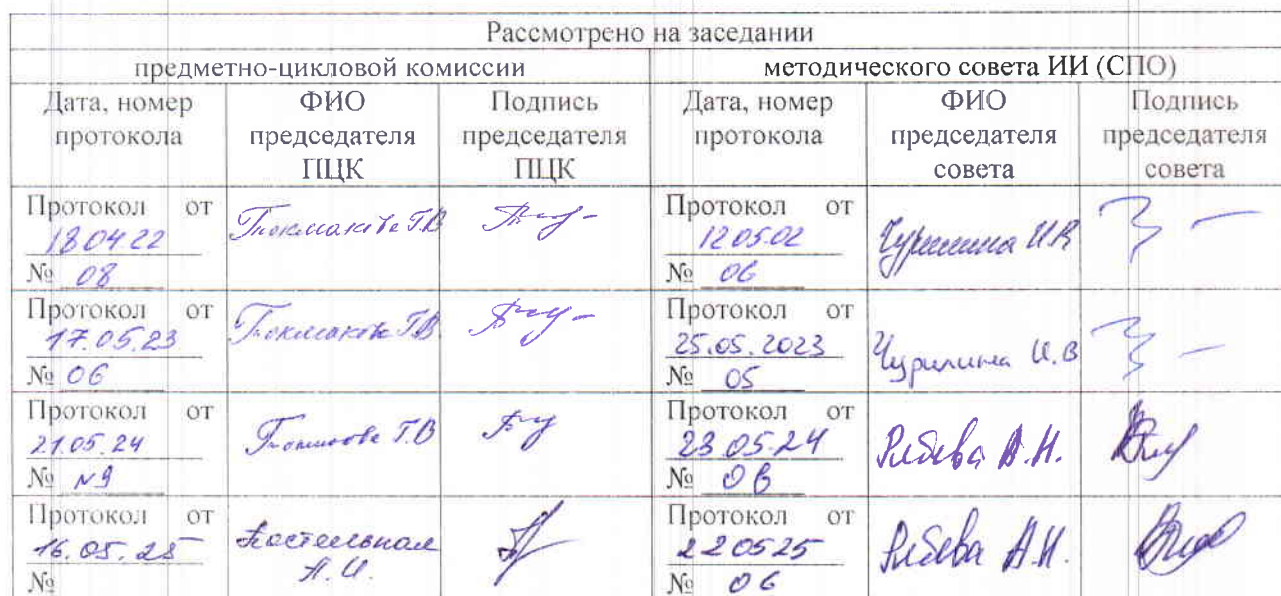 Рассмотрено на заседании
предметно-цикловой комиссии методического совета ИИ (СПО)
Дата, номер протокола ФИО председателя ПЦК Подпись председателя ПЦК Дата, номер протокола ФИО председателя совета Подпись председателя совета
Протокол от
18.04.22
№ 08
Токмакова Т.В
Протокол от
12.05.02
№ 06
Чурилина И.В
Протокол от
17.05.23
№ 06
Токмакова Т.В.
Протокол от
25.05.2023
№ 05
Чурилина И.В
Протокол от
21.05.24
№ №9
Т.В
Протокол от
23.05.24
№ 06
А.Н.
Протокол от
16.05.25
№
А.И.
Протокол от
22.05.25
№ 06
А.Н.